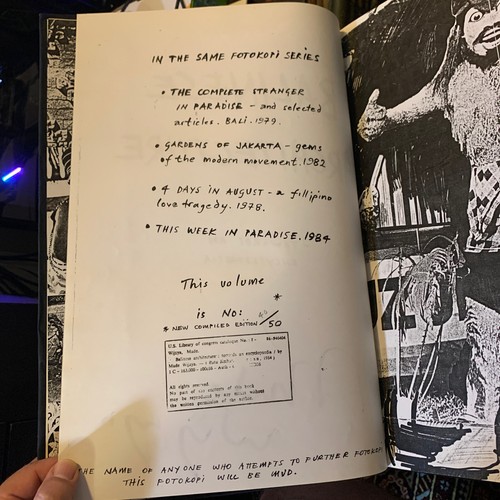 IN THE SAME FOTOKOPI SERIES
• THE COMPLETE STRANGER
IN PARADISE – and selected
articles. BALI. 1979.
• GARDENS OF JAKARTA – gems
of the modern movement. 1982
• 4 DAYS IN AUGUST – a fillipino
love tragedy. 1978.
• THIS WEEK IN PARADISE. 1984
This volume
*
is No:
* NEW COMPILED EDITION /50
U.S. Library of congress catalogue No. : I -
Wijaya, Made.
Balinese architecture : towards an encyclopedia / by
Made Wijaya.
All rights reserved.
No part of the contents of this book
may be reproduced by any means without
the written permission of the author.
THE NAME OF ANYONE WHO ATTEMPTS TO FURTHER FOTOKOPI
THIS FOTOKOPI WILL BE MUD.